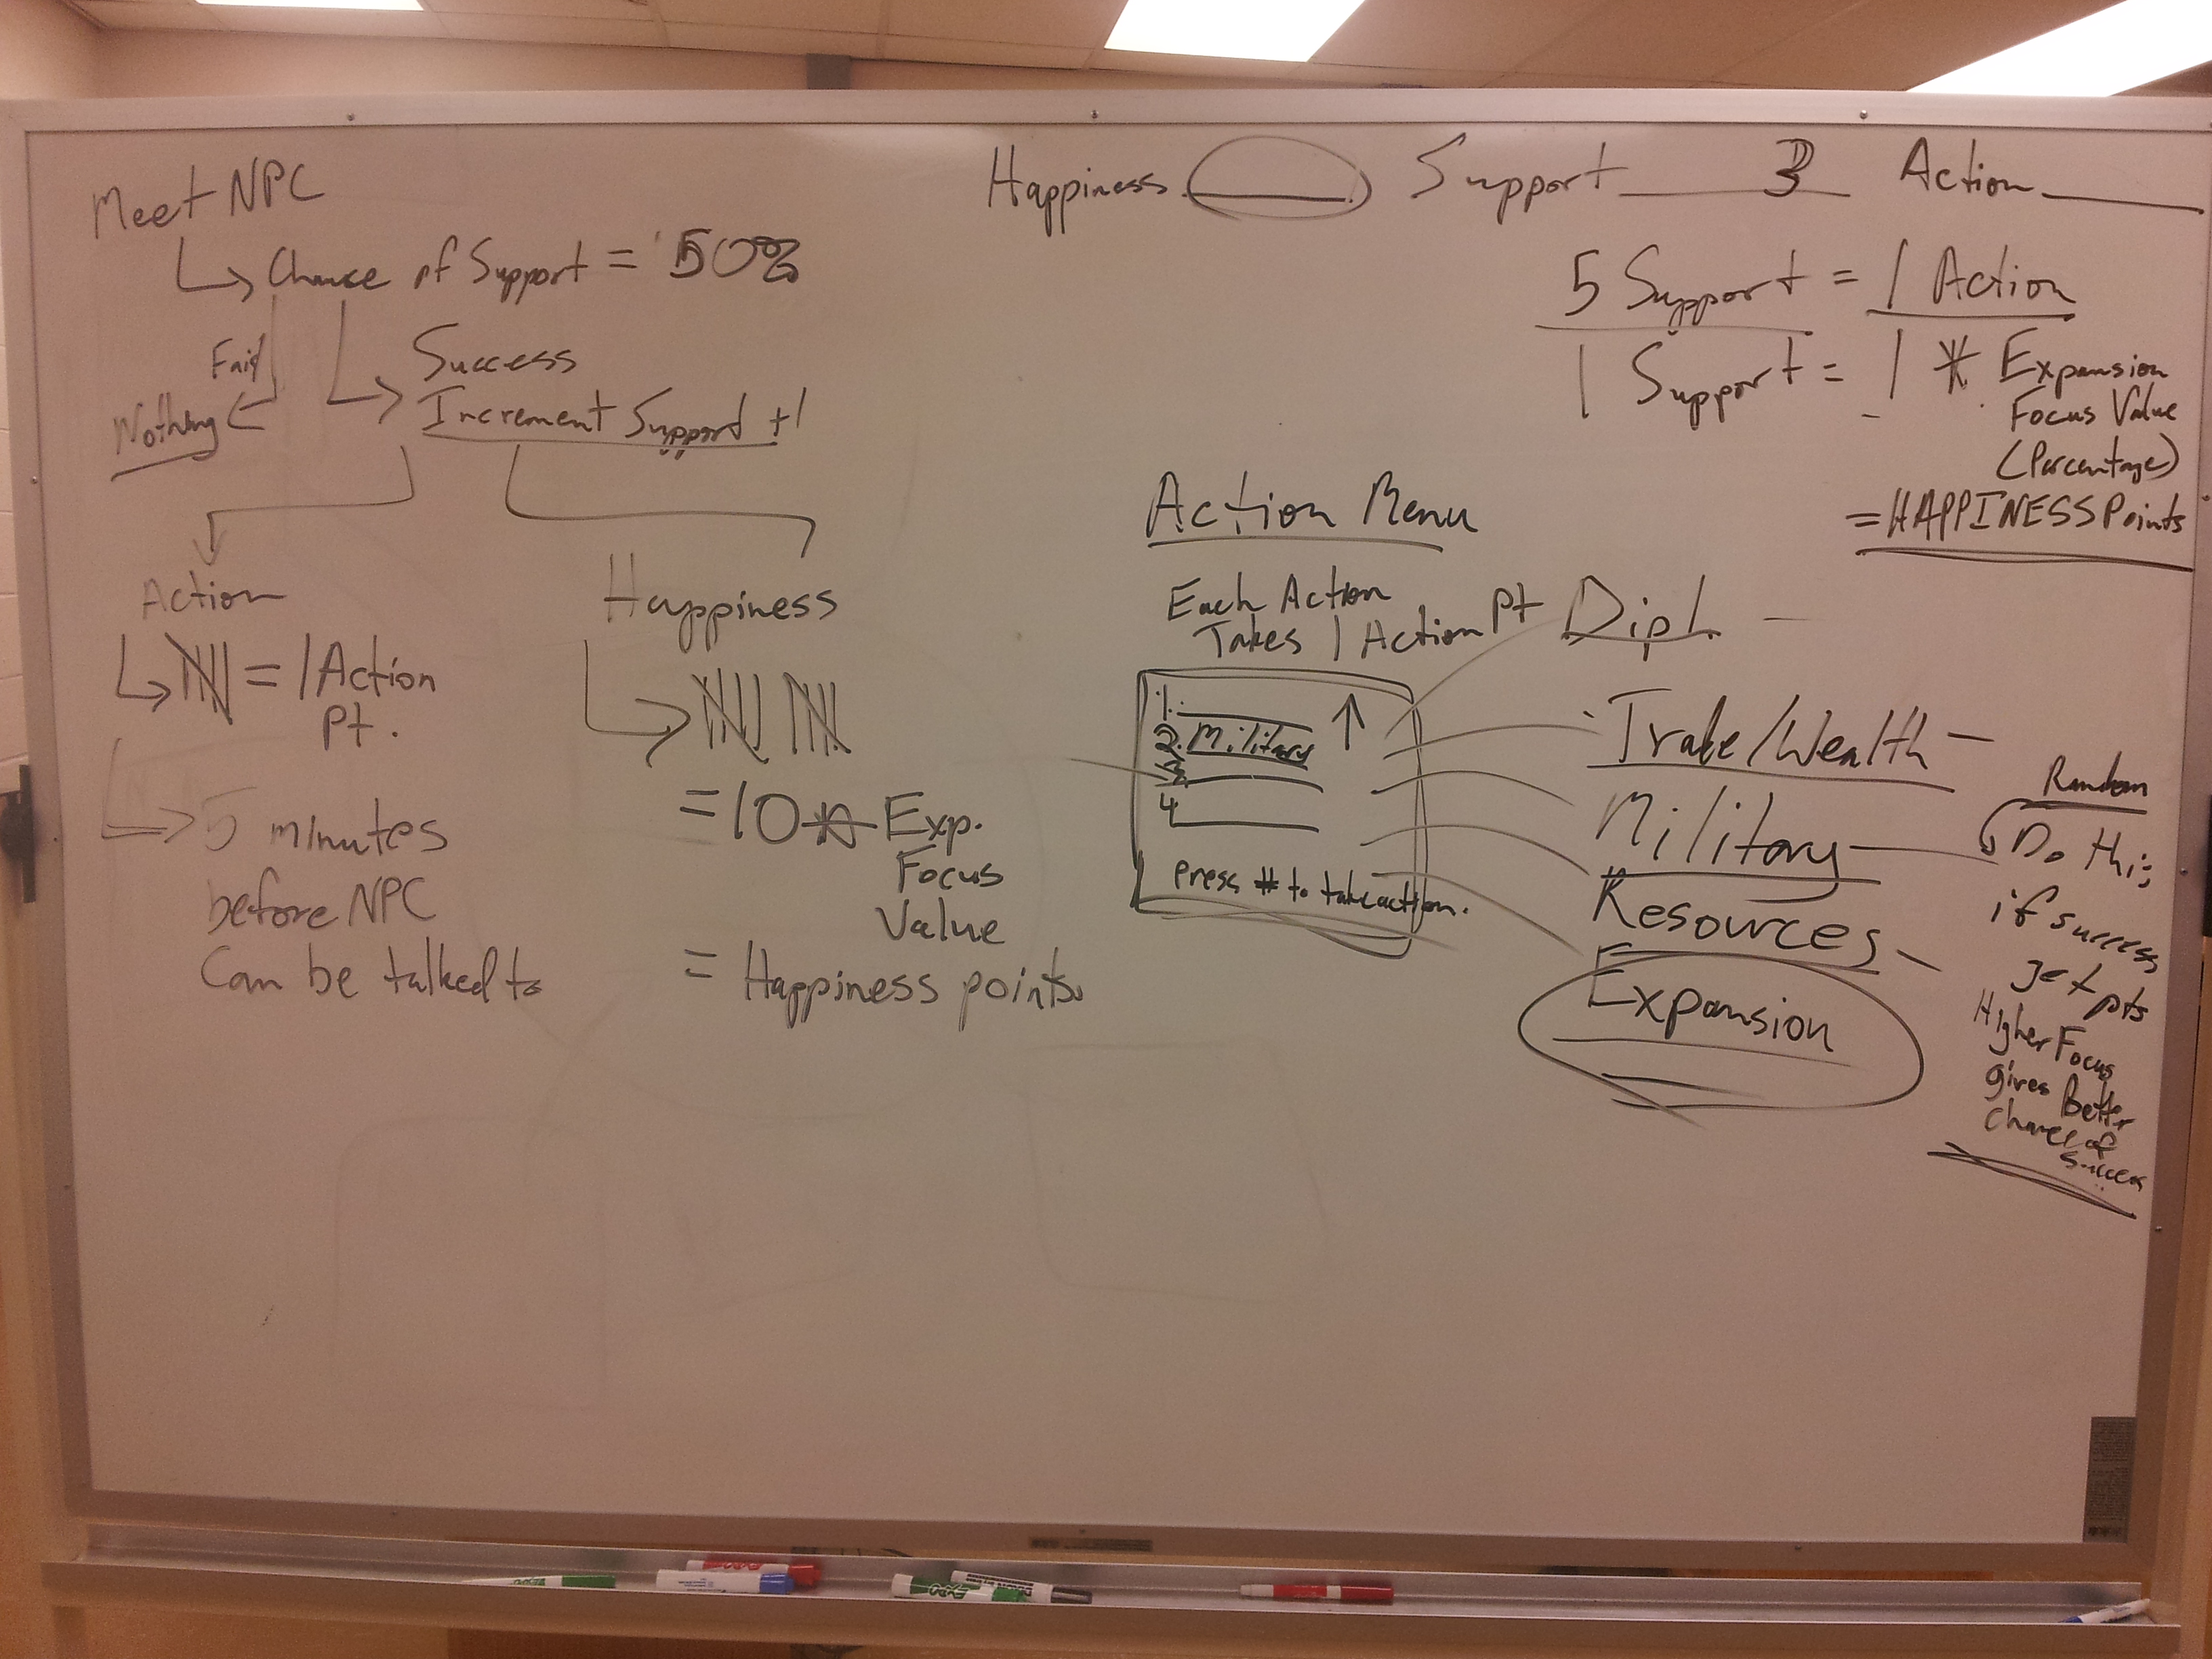 Meet NPC
Chance of Support = 50%
Fail
Nothing
Success
Increment Support +1
Action
= 1 Action
Pt.
5 minutes
before NPC
Can be talked to
Happiness
= 10 * Exp.
Focus
Value
= Happiness points.
Happiness Support 3 Action
5 Support = 1 Action
1 Support = 1 * Expansion
Focus Value
(Percentage)
= HAPPINESS Points
Action Menu
Each Action
Takes 1 Action Pt
1.
2. Military
3.
4
press # to take action.
Dipl.
Trade/Wealth
Military
Resources
Expansion
Random
Do this
if success
get pts
Higher Focus
gives Better
chance of
success